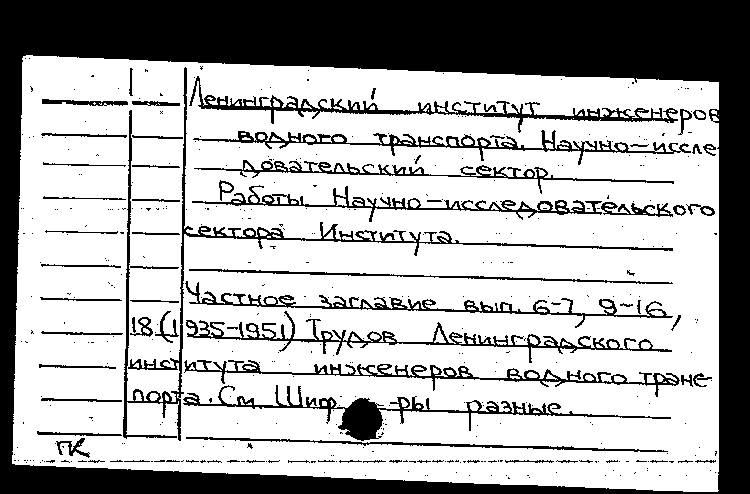 Ленинградский институт инженеров
водного транспорта. Научно-иссле-
довательский сектор.
Работы Научно-исследовательского
сектора Института.
Частное заглавие вып. 6-7, 9-16,
18 (1935-1951) Трудов Ленинградского
института инженеров водного транс-
порта. См. Шиф-ры разные.
ПК